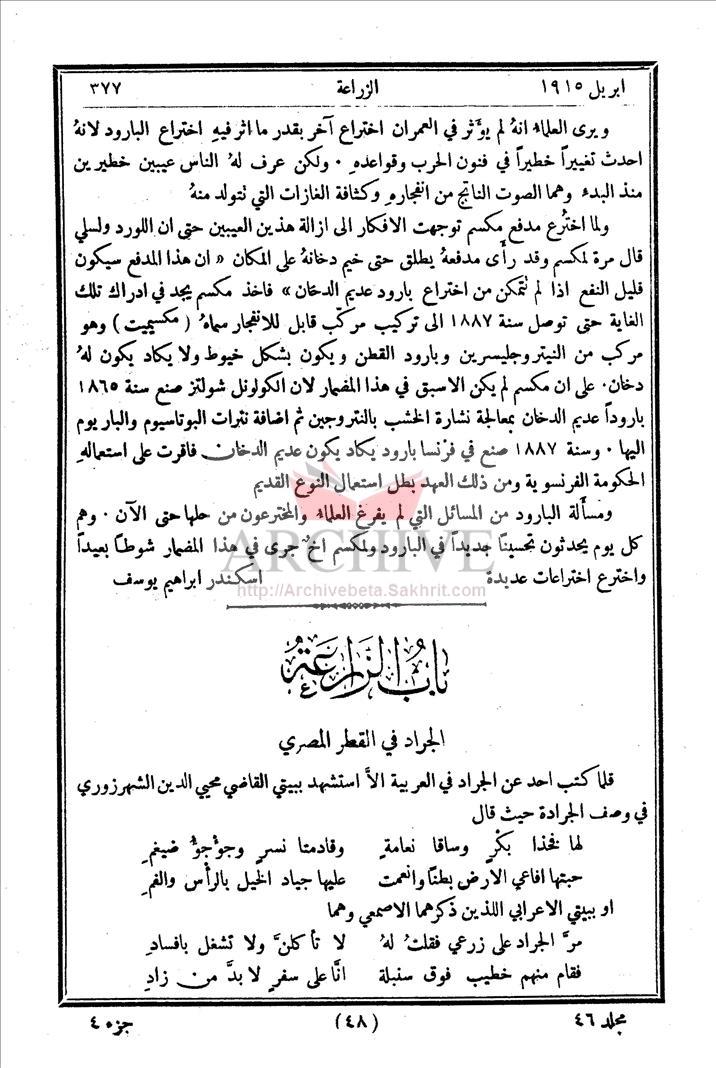 ابريل ١٩١٥ الزراعة ٣٧٧
ويرى العلماء انهُ لم يؤثر في العمران اختراع آخر بقدر ما اثر فيهِ اختراع البارود لانهُ
احدث تغييراً خطيراً في فنون الحرب وقواعدهِ ٠ ولكن عرف لهُ الناس عيبين خطيرين
منذ البدء وهما الصوت الناتج من انفجارهِ وكثافة الغازات التي تتولد منهُ
ولما اختُرع مدفع مكسم توجهت الافكار الى ازالة هذين العيبين حتى ان اللورد ولسلي
قال مرة لمكسم وقد رأى مدفعهُ يطلق حتى خيم دخانهُ على المكان « ان هذا المدفع سيكون
قليل النفع اذا لم نتمكن من اختراع بارود عديم الدخان » فاخذ مكسم يجد في ادراك تلك
الغاية حتى توصل سنة ١٨٨٧ الى تركيب مركّب قابل للانفجار سماهُ ( مكسيميت ) وهو
مركب من النيتروجليسرين وبارود القطن ويكون بشكل خيوط ولا يكاد يكون لهُ
دخان٠ على ان مكسم لم يكن الاسبق في هذا المضمار لان الكولونل شولتز صنع سنة ١٨٦٥
باروداً عديم الدخان بمعالجة نشارة الخشب بالنتروجين ثم اضافة نترات البوتاسيوم والباريوم
اليها ٠ وسنة ١٨٨٧ صنع في فرنسا بارود يكاد يكون عديم الدخان فاقرت على استعمالهِ
الحكومة الفرنسوية ومن ذلك العهد بطل استعمال النوع القديم
ومسألة البارود من المسائل التي لم يفرغ العلماء والمخترعون من حلها حتى الآن ٠ وهم
كل يوم يحدثون تحسيناً جديداً في البارود ولمكسم اخٌ جرى في هذا المضمار شوطاً بعيداً
واخترع اختراعات عديدة اسكندر ابراهيم يوسف
ARCHIVE
http://Archivebeta.Sakhrit.com
باب الزراعة
الجراد في القطر المصري
قلما كتب احد عن الجراد في العربية الاَّ استشهد ببيتي القاضي محيي الدين الشهرزوري
في وصف الجرادة حيث قال
لها فخذا بكرٍ وساقا نعامةٍ وقادمتا نسرٍ وجؤجؤُ ضيغمِ
حبتها افاعي الارض بطناً وانعمت عليها جياد الخيل بالرأس والفمِ
او ببيتي الاعرابي اللذين ذكرهما الاصمعي وهما
مرَّ الجراد على زرعي فقلتُ لهُ لا تأكلنَّ ولا تشغل بافسادِ
فقام منهم خطيب فوق سنبلة انَّا على سفرٍ لا بدَّ من زادِ
مجلد ٤٦ (٤٨) جزء ٤